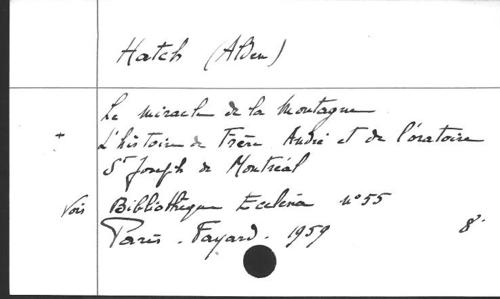 Hatch (Alden)
Le miracle de la Montagne
+ L'histoire de Frère André et de l'oratoire
St Joseph de Montréal
Vois Bibliothèque Ecclesia n°55
Paris - Fayard. 1959 8°